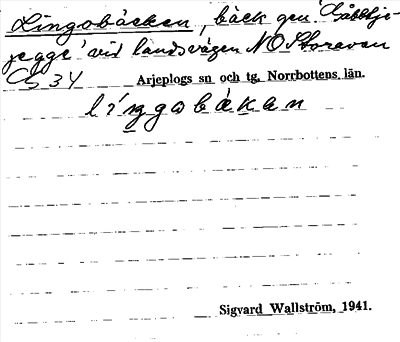 Lingobäcken, bäck gen. Gåbbtje-
jegge vid landsvägen NO Storavan
CS 34 Arjeplogs sn och tg, Norrbottens län.
líŋgobäkan
Sigvard Wallström, 1941.